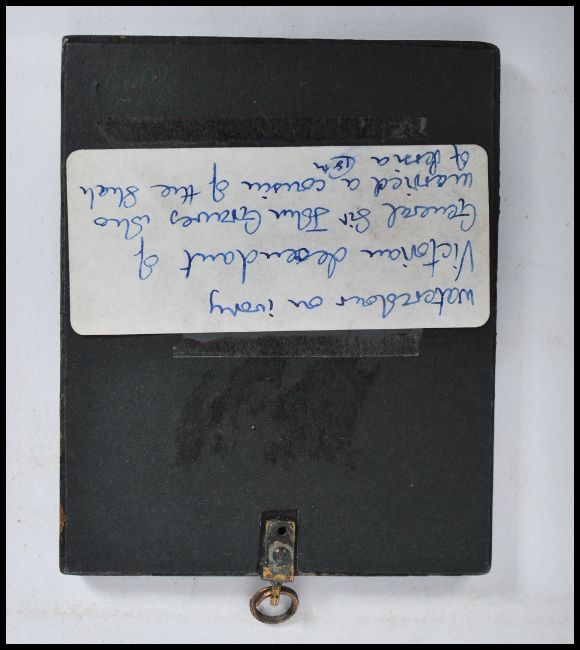 watercolour on ivory
Victorian desendant of
General Sir John Graves who
married a cousin of the Shah
of Persia